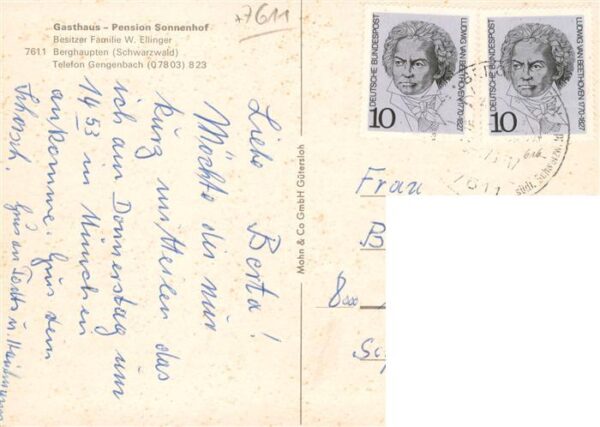 Gasthaus – Pension Sonnenhof
Besitzer Familie W. Ellinger
7611 Berghaupten (Schwarzwald)
Telefon Gengenbach (07803) 823
7611
Liebe Berta!
Möchte dir nur
kurz mitteilen das
ich am Donnerstag um
14 53 in München
ankomme. Gruß dein
Schorsch.
Mohn & Co GmbH Gütersloh
DEUTSCHE BUNDESPOST
LUDWIG VAN BEETHOVEN 1770-1827
10
DEUTSCHE BUNDESPOST
LUDWIG VAN BEETHOVEN 1770-1827
10
7611
Frau
B
8000